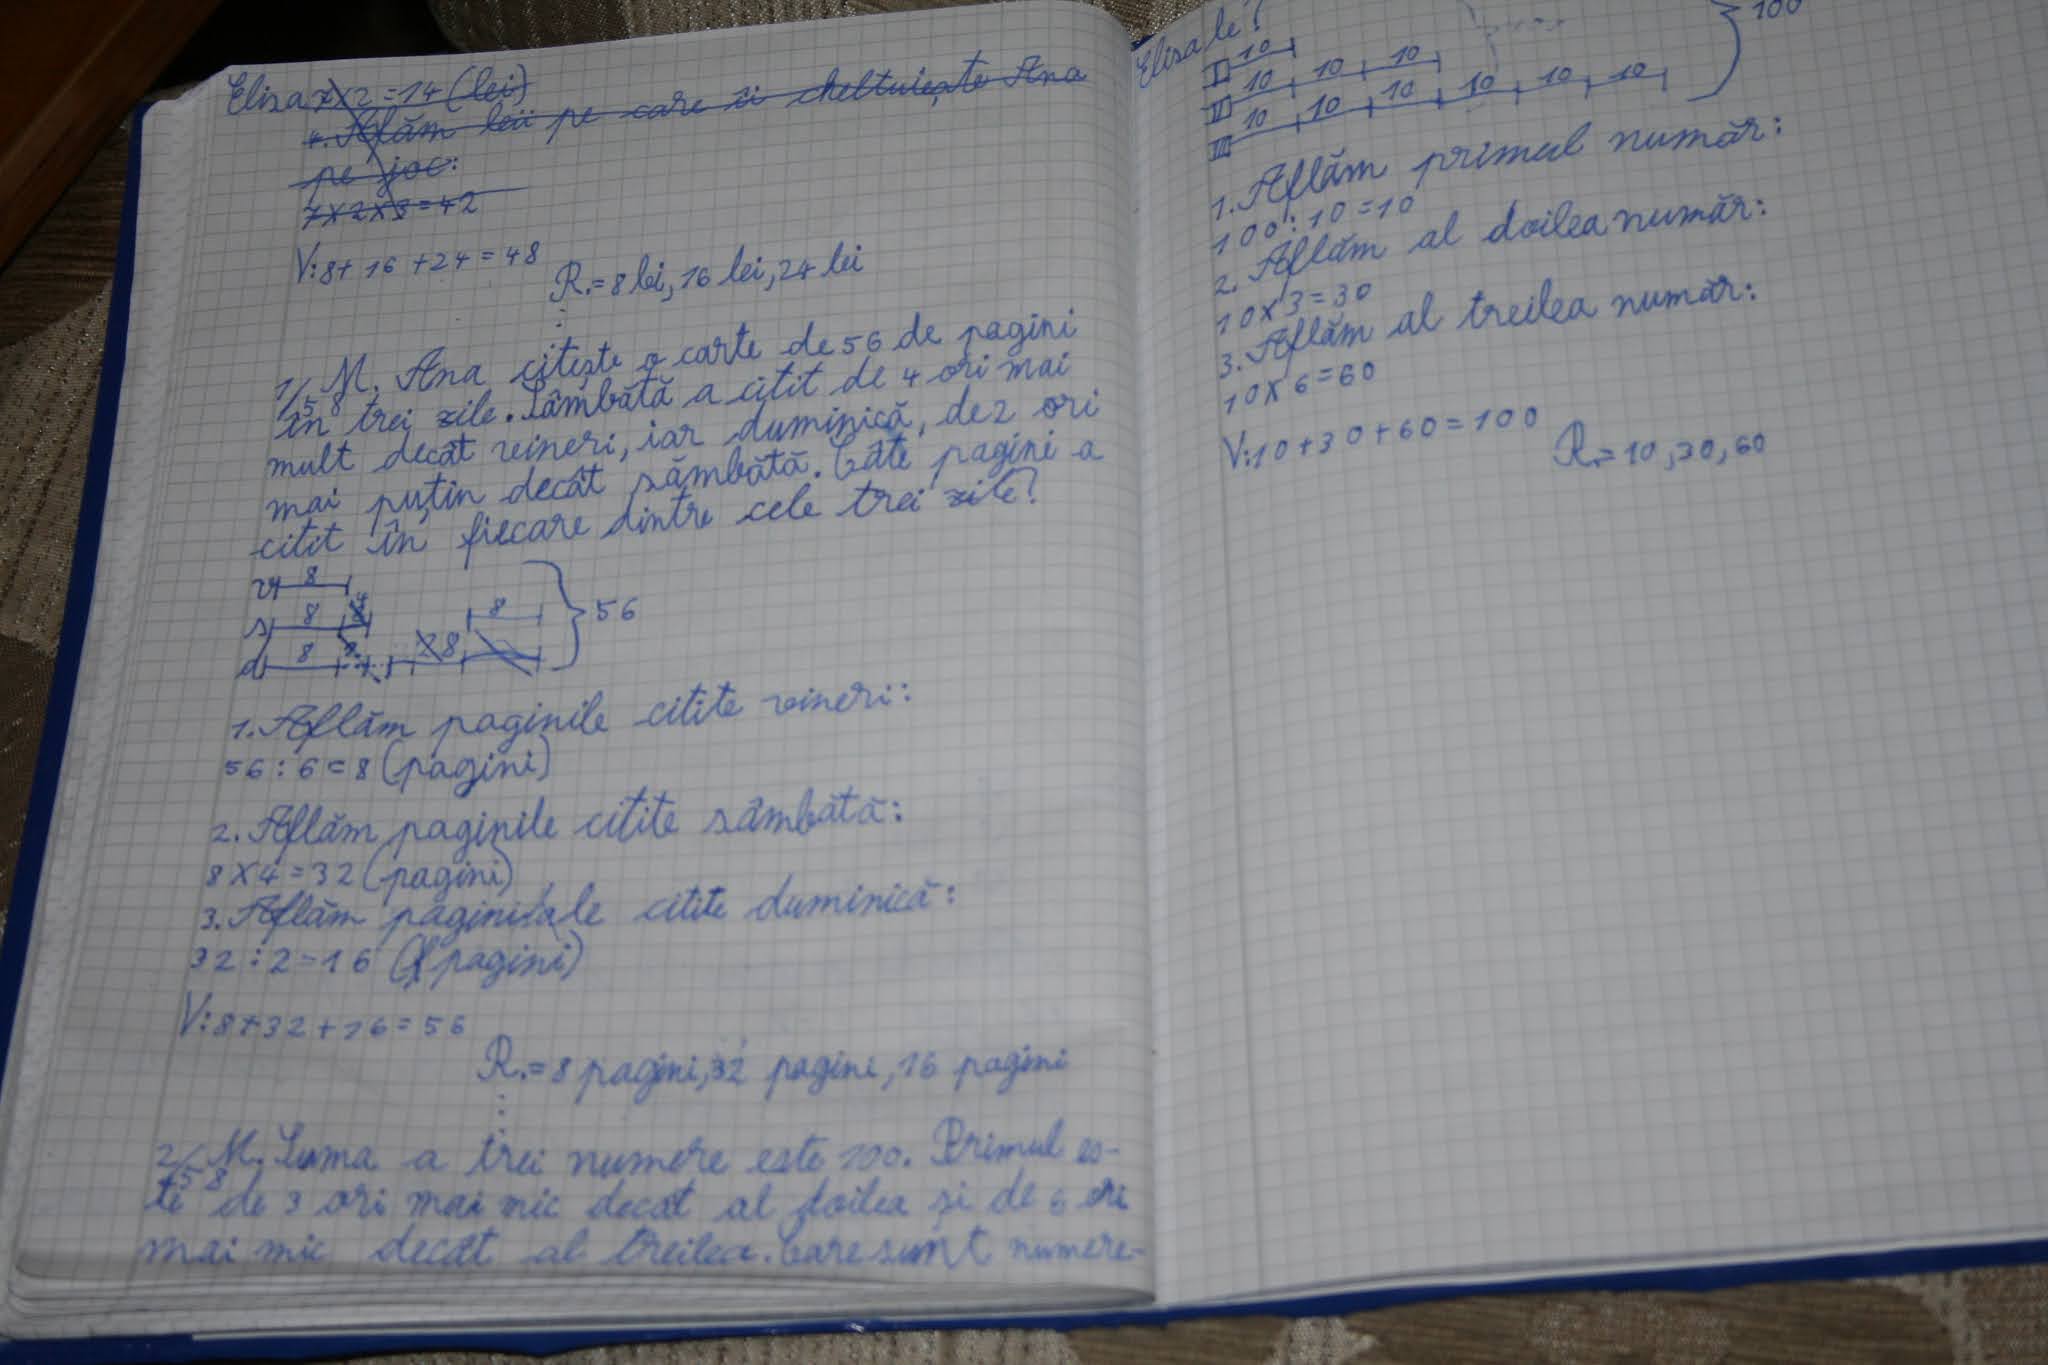 Elisa 7x2=14 (lei)
4. Aflăm leii pe care îi cheltuiește Ana
pe joc:
7x2x3=42
V:8+16+24=48
R.=8 lei, 16 lei, 24 lei
1/58 M. Ana citește o carte de 56 de pagini
în trei zile. Sâmbătă a citit de 4 ori mai
mult decât vineri, iar duminică, de 2 ori
mai puțin decât sâmbătă. Câte pagini a
citit în fiecare dintre cele trei zile?
v 8
s 8 8
d 8 28 56
1. Aflăm paginile citite vineri:
56:6=8 (pagini)
2. Aflăm paginile citite sâmbătă:
8x4=32 (pagini)
3. Aflăm paginile citite duminică:
32:2=16 (pagini)
V:8+32+16=56
R.=8 pagini, 32 pagini, 16 pagini
2/58 M. Suma a trei numere este 100. Primul es-
te de 3 ori mai mic decât al doilea și de 6 ori
mai mic decât al treilea. Care sunt numere-
Elisa le?
I 10 100
II 10 10 10
III 10 10 10 10 10 10
1. Aflăm primul număr:
100:10=10
2. Aflăm al doilea număr:
10x3=30
3. Aflăm al treilea număr:
10x6=60
V:10+30+60=100
R.=10,30,60